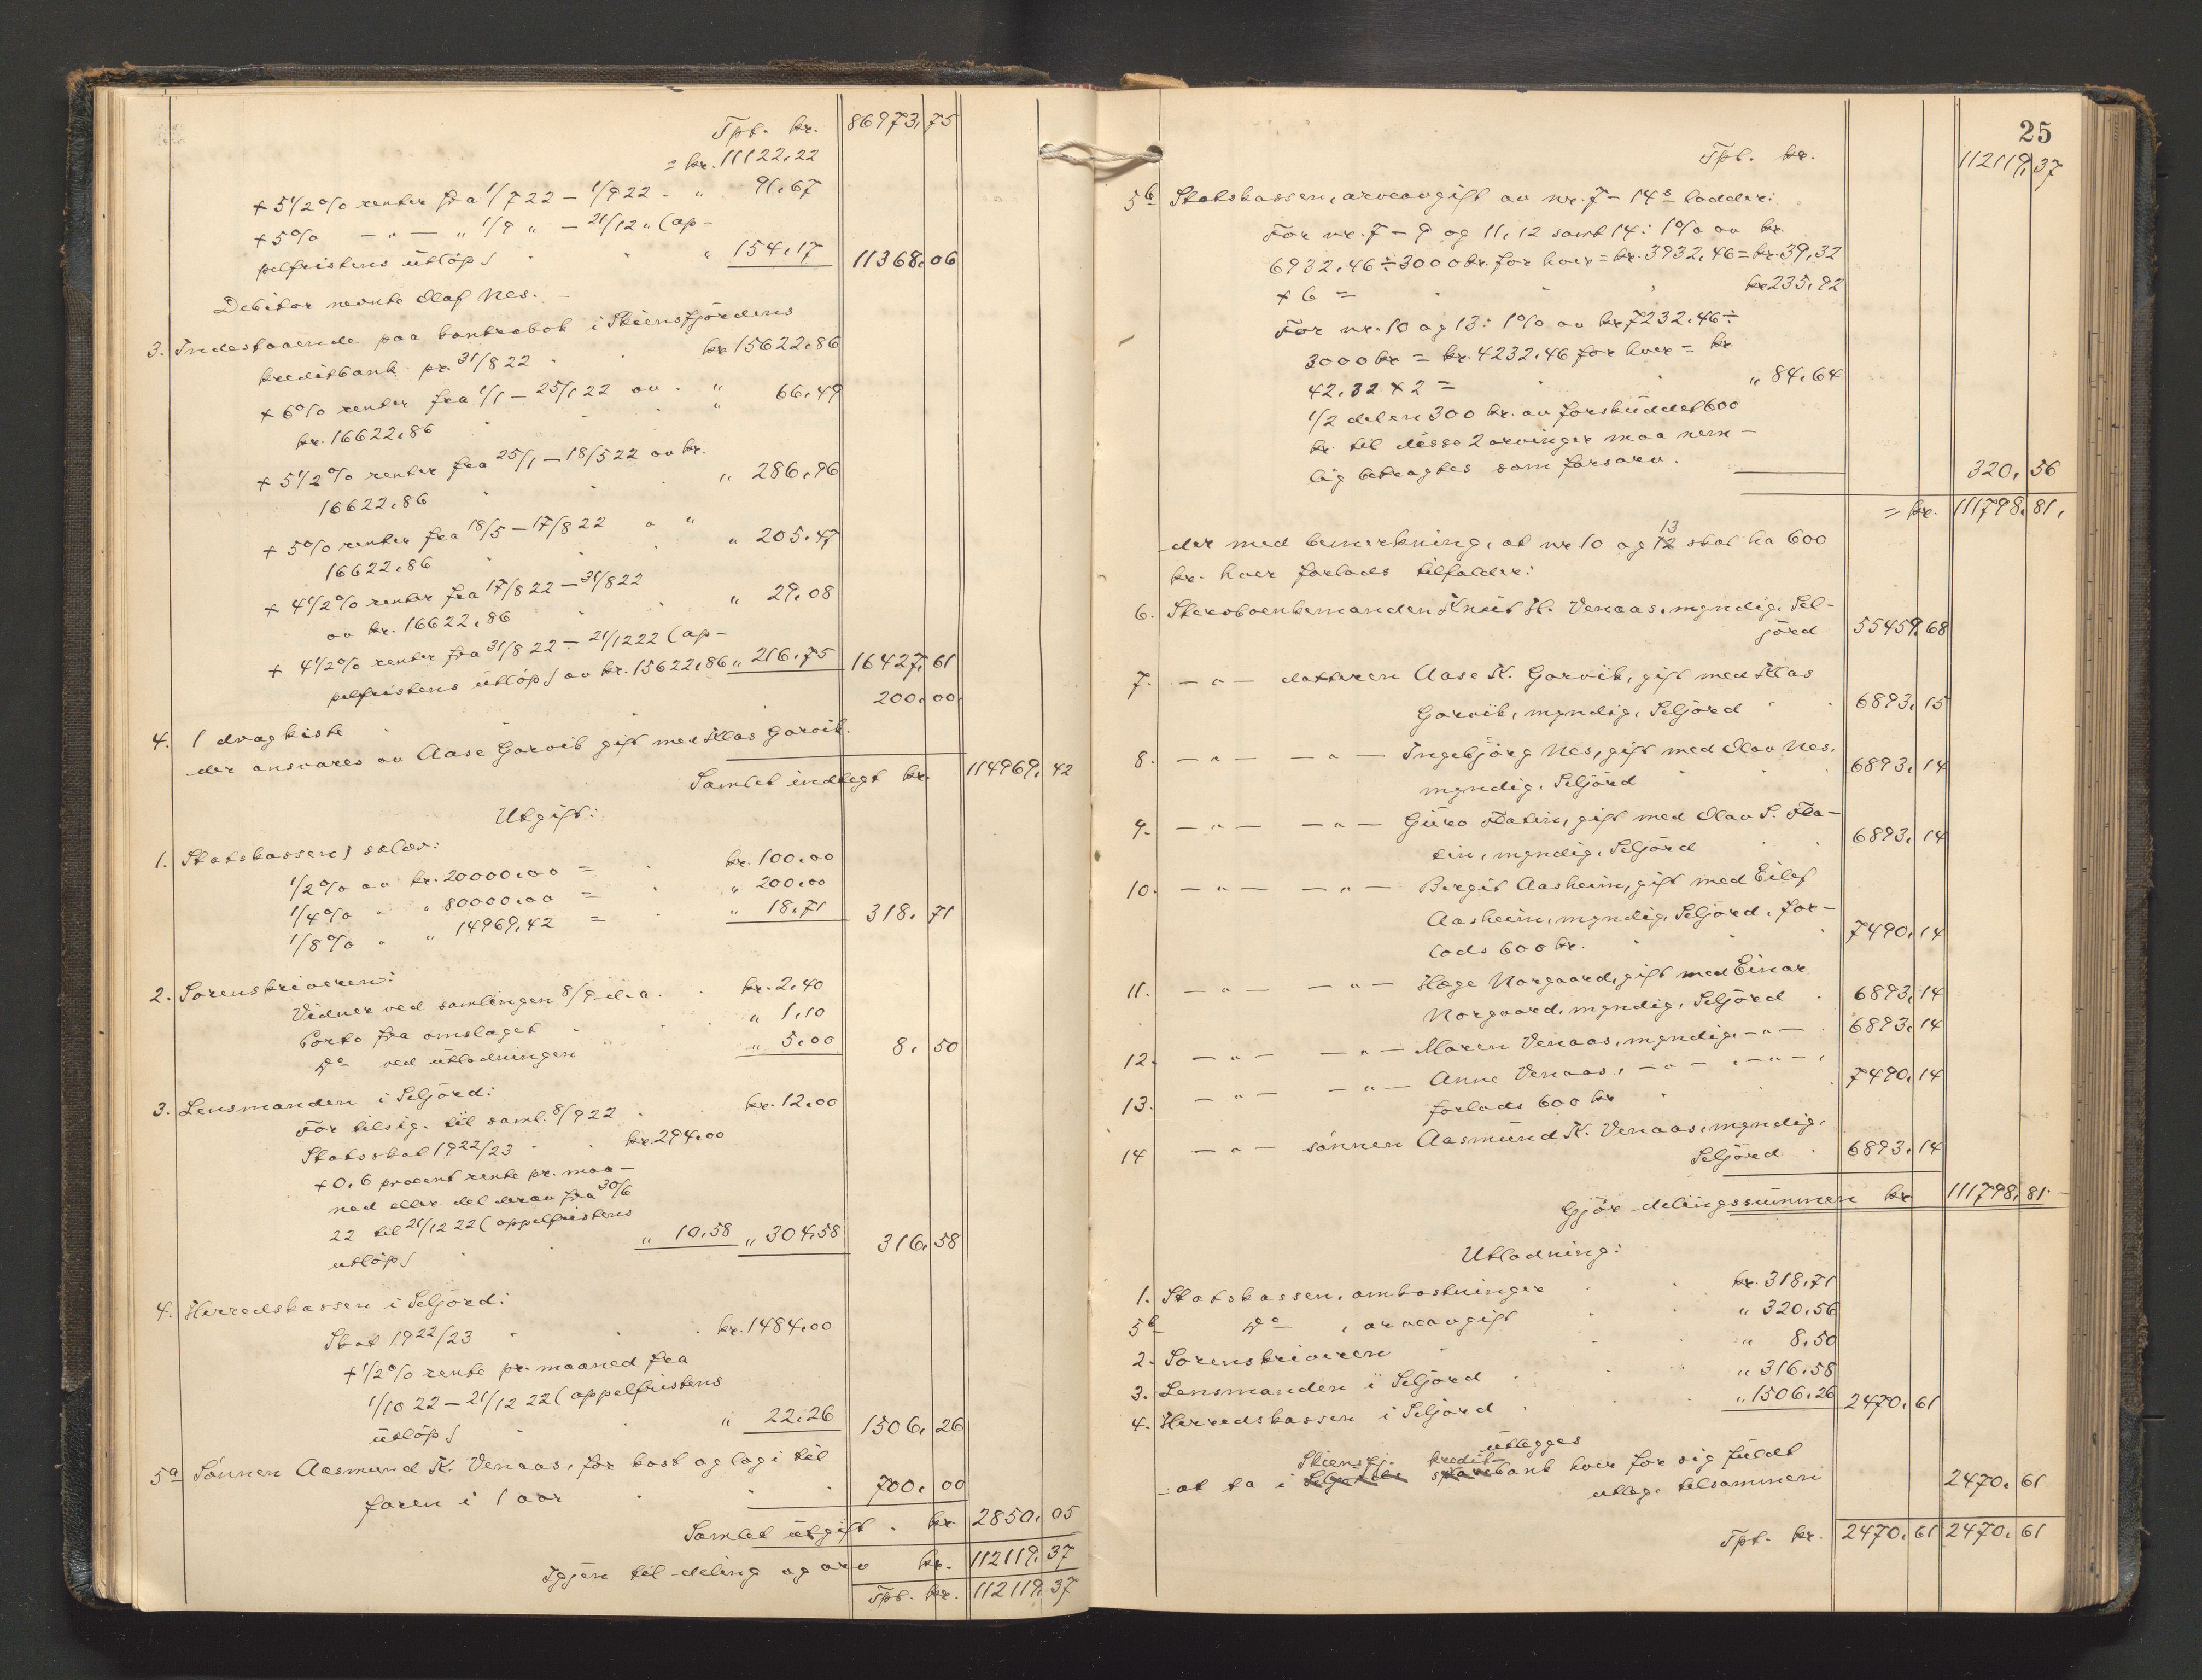 Tpt. kr. 86973,75
= kr. 11122,22
+ 5 1/2 % renter fra 1/7 22 – 1/9 22 . " 91,67
+ 5 % –"– " 1/9 " – 21/12 " (ap-
pelfristens utløp) " 154,17 11368,06
Debitor nevnte Olaf Nes. –
3. Indestaaende paa kontrabok i Skiensfjordens
kreditbank pr. 31/8 22 kr. 15622,86
+ 6 % renter fra 1/1 – 25/1 22 av . " 66,49
kr. 16622,86 "
+ 5 1/2 % renter fra 25/1 – 18/5 22 av kr.
16622,86 " 286,96
+ 5 % renter fra 18/5 – 17/8 22 " "
16622,86 " 205,47
+ 4 1/2 % renter fra 17/8 22 – 31/8 22
av kr. 16622,86 " 29,08
+ 4 1/2 % renter fra 31/8 22 – 21/12 22 (ap-
pelfristens utløp) av kr. 15622,86 " 216,75 16427,61
4. 1 dragkiste 200,00
der ansvares av Aase Garvik gift med Klas Garvik.
Samlet indtægt kr. 114969,42
Utgift:
1. Statskassen, salær:
1/2 % av kr. 20000,00 = kr. 100,00
1/4 % " " 80000,00 = " 200,00
1/8 % " " 14969,42 = " 18,71 318,71
2. Sorenskriveren:
Vidner ved samlingen 8/9 d.a. kr. 2,40
Porto fra omslaget " 1,10
do ved utlodningen " 5,00 8,50
3. Lensmanden i Seljord:
For tilsig. til saml. 8/9 22 kr. 12,00
Statsskat 1922/23 kr. 294,00
+ 0,6 procent rente pr. maa-
ned eller del derav fra 30/6
22 til 21/12 22 (appelfristens
utløp) " 10,58 " 304,58 316,58
4. Herredskassen i Seljord:
Skat 1922/23 kr. 1484,00
+ 1/2 % rente pr. maaned fra
1/10 22 – 21/12 22 (appelfristens
utløp) " 22,26 1506,26
5a Sønnen Aasmund K. Venaas, for kost og logi til
faren i 1 aar 700,00
Samlet utgift . kr 2850,05
Igjen til deling og arv kr. 112119,37
Tpt. kr. 112119,37
25
Tpt. kr. 112119,37
5b Statskassen, arveavgift av nr. 7 – 14s lodder:
For nr. 7 – 9 og 11, 12 samt 14: 1 % av kr.
6932,46 ÷ 3000 kr. for hver = kr. 3932,46 = kr. 39,32
× 6 = kr 235,92
For nr. 10 og 13: 1 % av kr. 7232,46 ÷
3000 kr = kr. 4232,46 for hver = kr
42,32 × 2 = " 84,64
1/2 delen 300 kr. av forskuddet 600
kr. til disse 2 arvinger maa nem-
lig betragtes som farsarv. 320,56
= kr. 111798,81,
der med bemerkning, at nr 10 og 12 13 skal ha 600
kr. hver forlods tilfalder:
6. Stervboenkemanden Knut H. Venaas, myndig, Sel-
jord 55459,68
7. –"– datteren Aase K. Garvik, gift med Klas
Garvik, myndig, Seljord 6893,15
8. –"– –"– Ingebjörg Nes, gift med Olav Nes,
myndig, Seljord 6893,14
9. –"– –"– Guro Flatin, gift med Olav S. Fla-
tin, myndig, Seljord 6893,14
10. –"– –"– Birgit Aasheim, gift med Eilef
Aasheim, myndig, Seljord, for-
lods 600 kr. 7490,14
11. –"– –"– Hæge Norgaard, gift med Einar
Norgaard, myndig, Seljord 6893,14
12. –"– –"– Maren Venaas, myndig, –"– 6893,14
13. –"– –"– Anne Venaas, –"– , –"– ,
forlods 600 kr 7490,14
14 –"– sønnen Aasmund K. Venaas, myndig,
Seljord 6893,14
Gjör delingssummen kr 111798,81
Utlodning:
1. Statskassen, omkostninger kr. 318,71
5b do , arveavgift " 320,56
2. Sorenskriveren " 8,50
3. Lensmanden i Seljord " 316,58
4. Herredskassen i Seljord " 1506,26 2470,61
utlegges
Skiensfj. kredit-
– at ta i Seljords sparebank hver for sig fuldt
utlæg, tilsammen 2470,61
Tpt. kr. 2470,61 2470,61